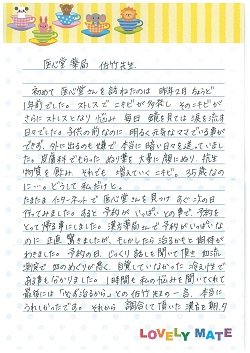 匠心堂薬局 佐竹先生
初めて匠心堂さんを訪ねたのは 昨年2月 ちょうど
1年前でした。ストレスで ニキビが多発し そのニキビが
さらにストレスとなり 悩み 毎日 鏡を見ては 涙を流す
日々でした。子供の前なのに 明るく元気なママでいる事が
できず、外に出るのも嫌で 本当に暗い日々を送っていまし
た。皮膚科でもらった ぬり薬を 大量に顔にぬり、抗生
物質を飲み、それでも 増えていくニキビ。35歳なの
に…。どうして私だけと。
たまたま インターネットで 匠心堂さんを見つけ すぐ 次の日
行ってみました。すると 予約が いっぱい との事で、予約を
とって帰る事にしました。漢方薬局さんで 予約がいっぱいな
のに 正直 驚きましたが、もしかしたら治るかもと 期待が
わきました。予約の日、じっくり 話しを聞いて頂き 血流
測定で 血のめぐりが悪く、自覚していなかった 冷え性で
ある事も分かりました。1時間も 私の悩みを聞いてくれて
最後には「必ず治るから」との佐竹先生の一言、本当に
うれしかったです。それから 調合して頂いた 漢方を 朝・夕
LOVELY MATE